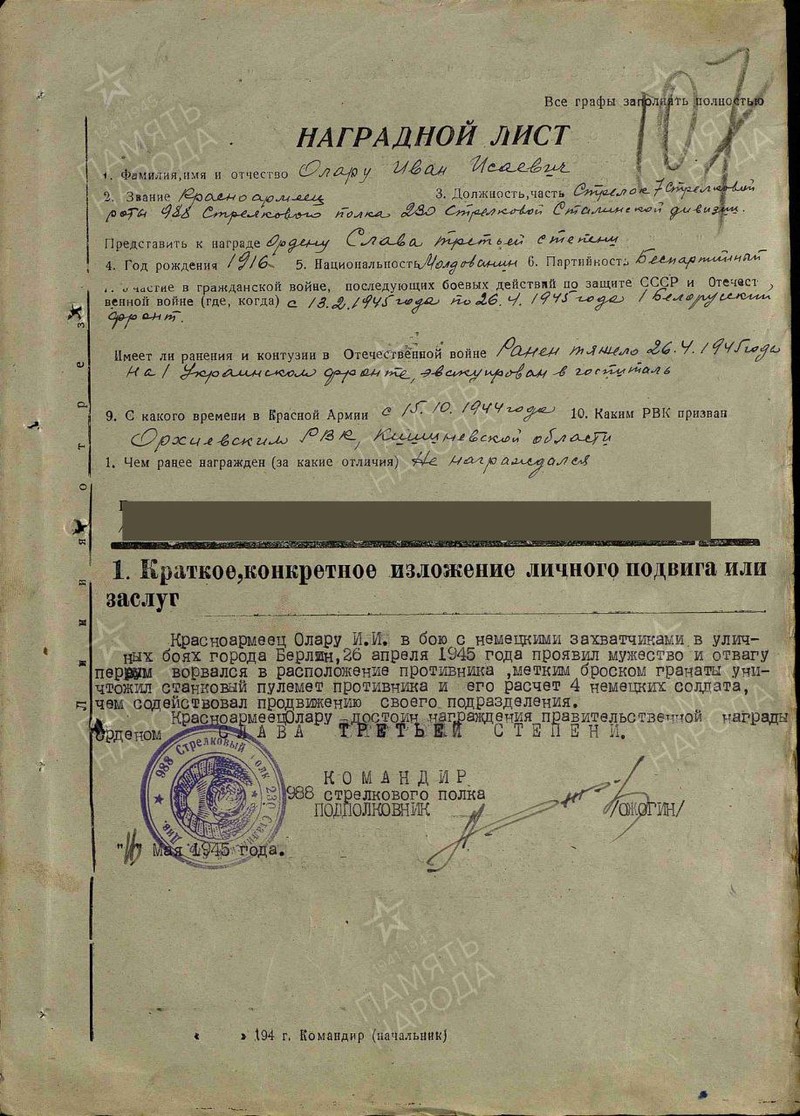 107
Все графы заполнять полностью
НАГРАДНОЙ ЛИСТ
1. Фамилия,имя и отчество Олару Иван Исаевич
2. Звание Красноармеец 3. Должность,часть Стрелок 7 Стрелковой
роты 988 Стрелкового полка 230 Стрелковой Сталинской дивизии.
Представить к награде Ордену Слава третьей степени
4. Год рождения 1916 5. Национальность Молдованин 6. Партийность Беспартийный
участие в гражданской войне, последующих боевых действий по защите СССР и Отечест
венной войне (где, когда) с 13.2.1945 года по 26.4.1945 года 1 Белорусский
фронт.
Имеет ли ранения и контузии в Отечественной войне Ранен тяжело 26.4.1945 года
на 1 Украинском фронте, эвакуирован в госпиталь
9. С какого времени в Красной Армии с 15.10.1944 года 10. Каким РВК призван
Оржиевским РВК, Кишиневской области
1. Чем ранее награжден (за какие отличия) Не награждался
1. Краткое,конкретное изложение личного подвига или
заслуг
Красноармеец Олару И.И. в бою с немецкими захватчиками в улич-
ных боях города Берлин,26 апреля 1945 года проявил мужество и отвагу
первым ворвался в расположение противника ,метким броском гранаты уни-
чтожил станковый пулемет противника и его расчет 4 немецких солдата,
чем содействовал продвижению своего подразделения.
КрасноармеецОлару достоин награждения правительственной награды
Орденом СЛАВА ТРЕТЬЕЙ СТЕПЕНИ.
988 Стрелковый полк 230 Стал. Див.
КОМАНДИР
988 стрелкового полка
ПОДПОЛКОВНИК /ОЖОГИН/
"16" Мая 1945 года.
« » 194 г. Командир (начальник)
ПАМЯТЬ НАРОДА
1941-1945